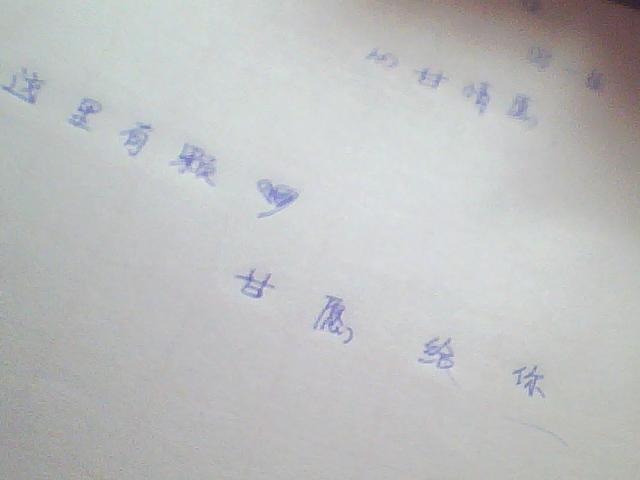 心甘情愿
这里有颗♥
甘愿给你